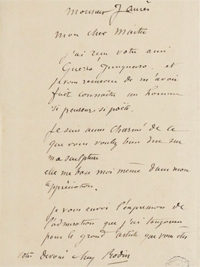 Monsieur Jaurès
Mon cher Maître
J'ai reçu votre ami
Guerra Junqueiro et
je vous remercie de m'avoir
fait connaître un homme
si penseur si poète.
Je suis aussi charmé de ce
que vous voulez bien dire sur
ma sculpture
elle me bon moi même dans mon
appréciation.
Je vous envoie l'expression de
l'admiration que j'ai toujours
pour le grand artiste que vous êtes
votre dévoué Aug Rodin